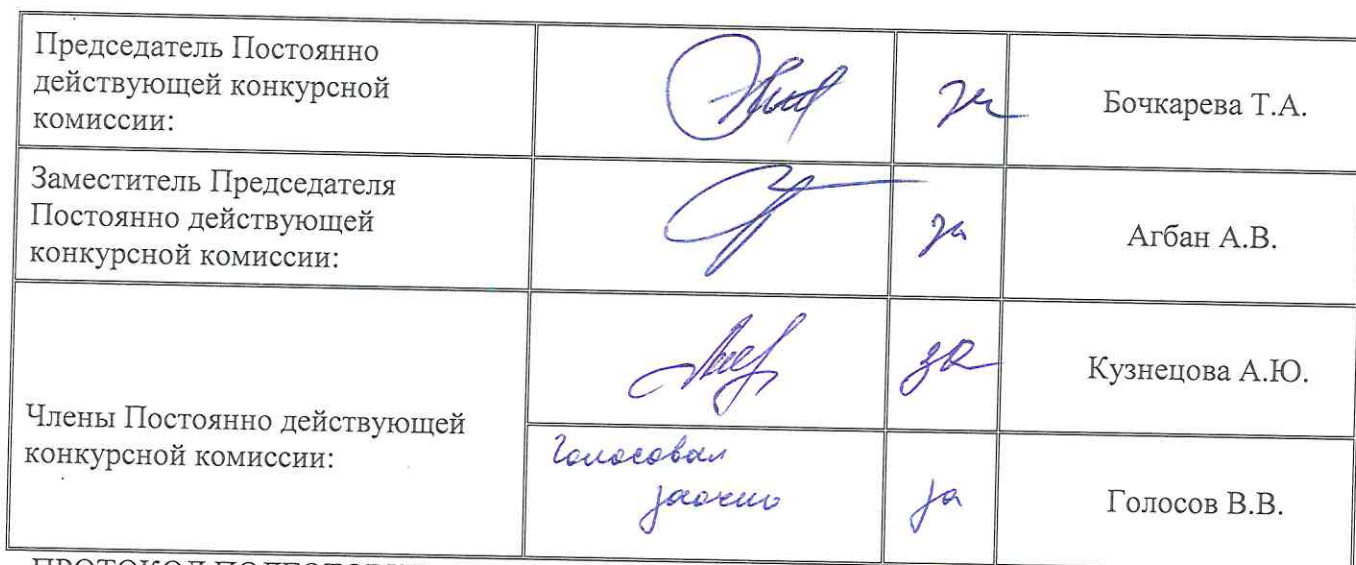 Председатель Постоянно
действующей конкурсной
комиссии:
за
Бочкарева Т.А.
Заместитель Председателя
Постоянно действующей
конкурсной комиссии:
за
Агбан А.В.
Члены Постоянно действующей
конкурсной комиссии:
за
Кузнецова А.Ю.
Голосовал
заочно
за
Голосов В.В.